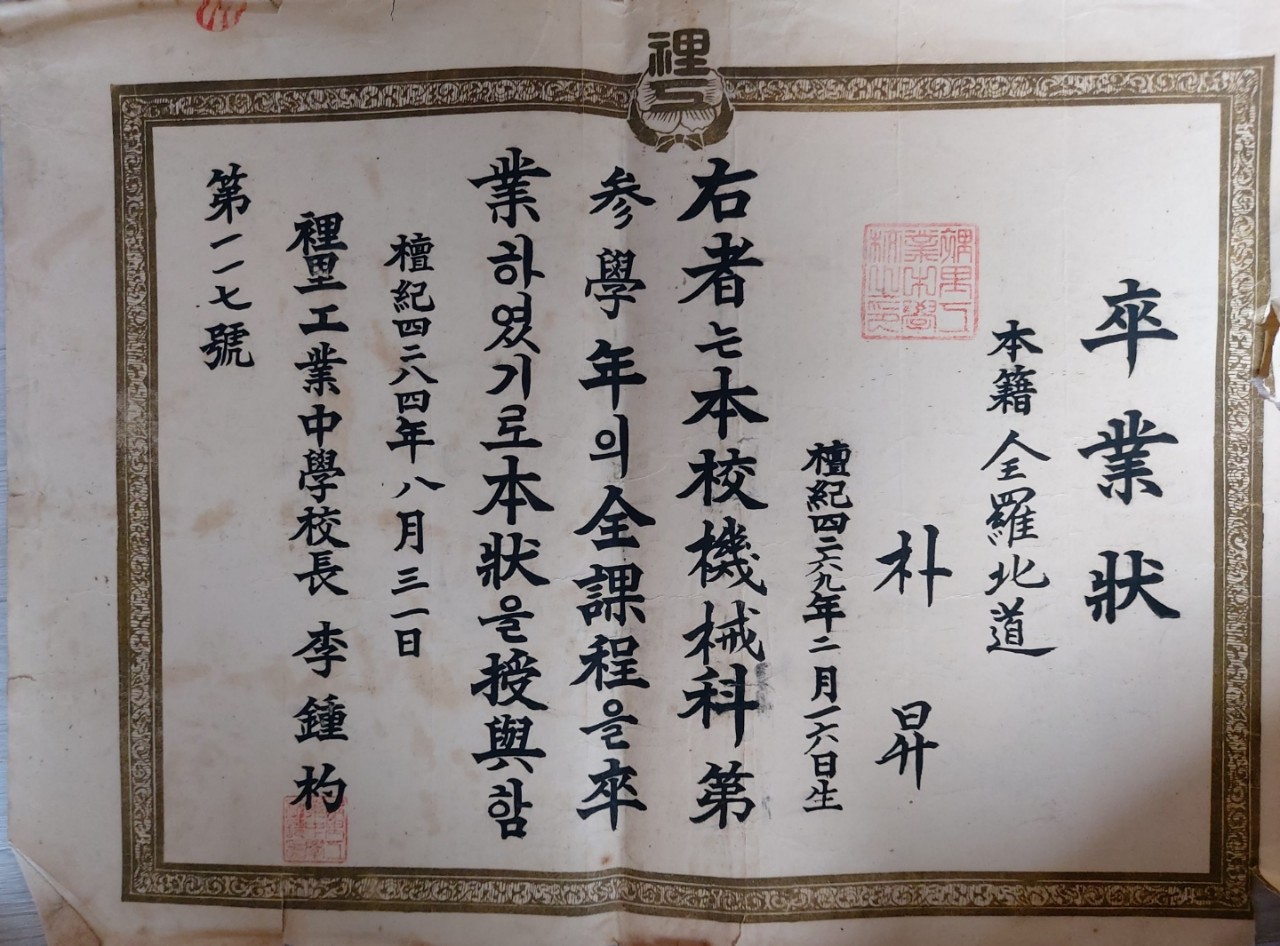 裡工
卒業狀
本籍 全羅北道
朴 昇
檀紀四二六九年二月一六日生
右者는本校機械科第
参學年의全課程을卒
業하였기로本狀을授與함
檀紀四二八四年八月三一日
裡里工業中學校長 李鍾杓
第一一七號